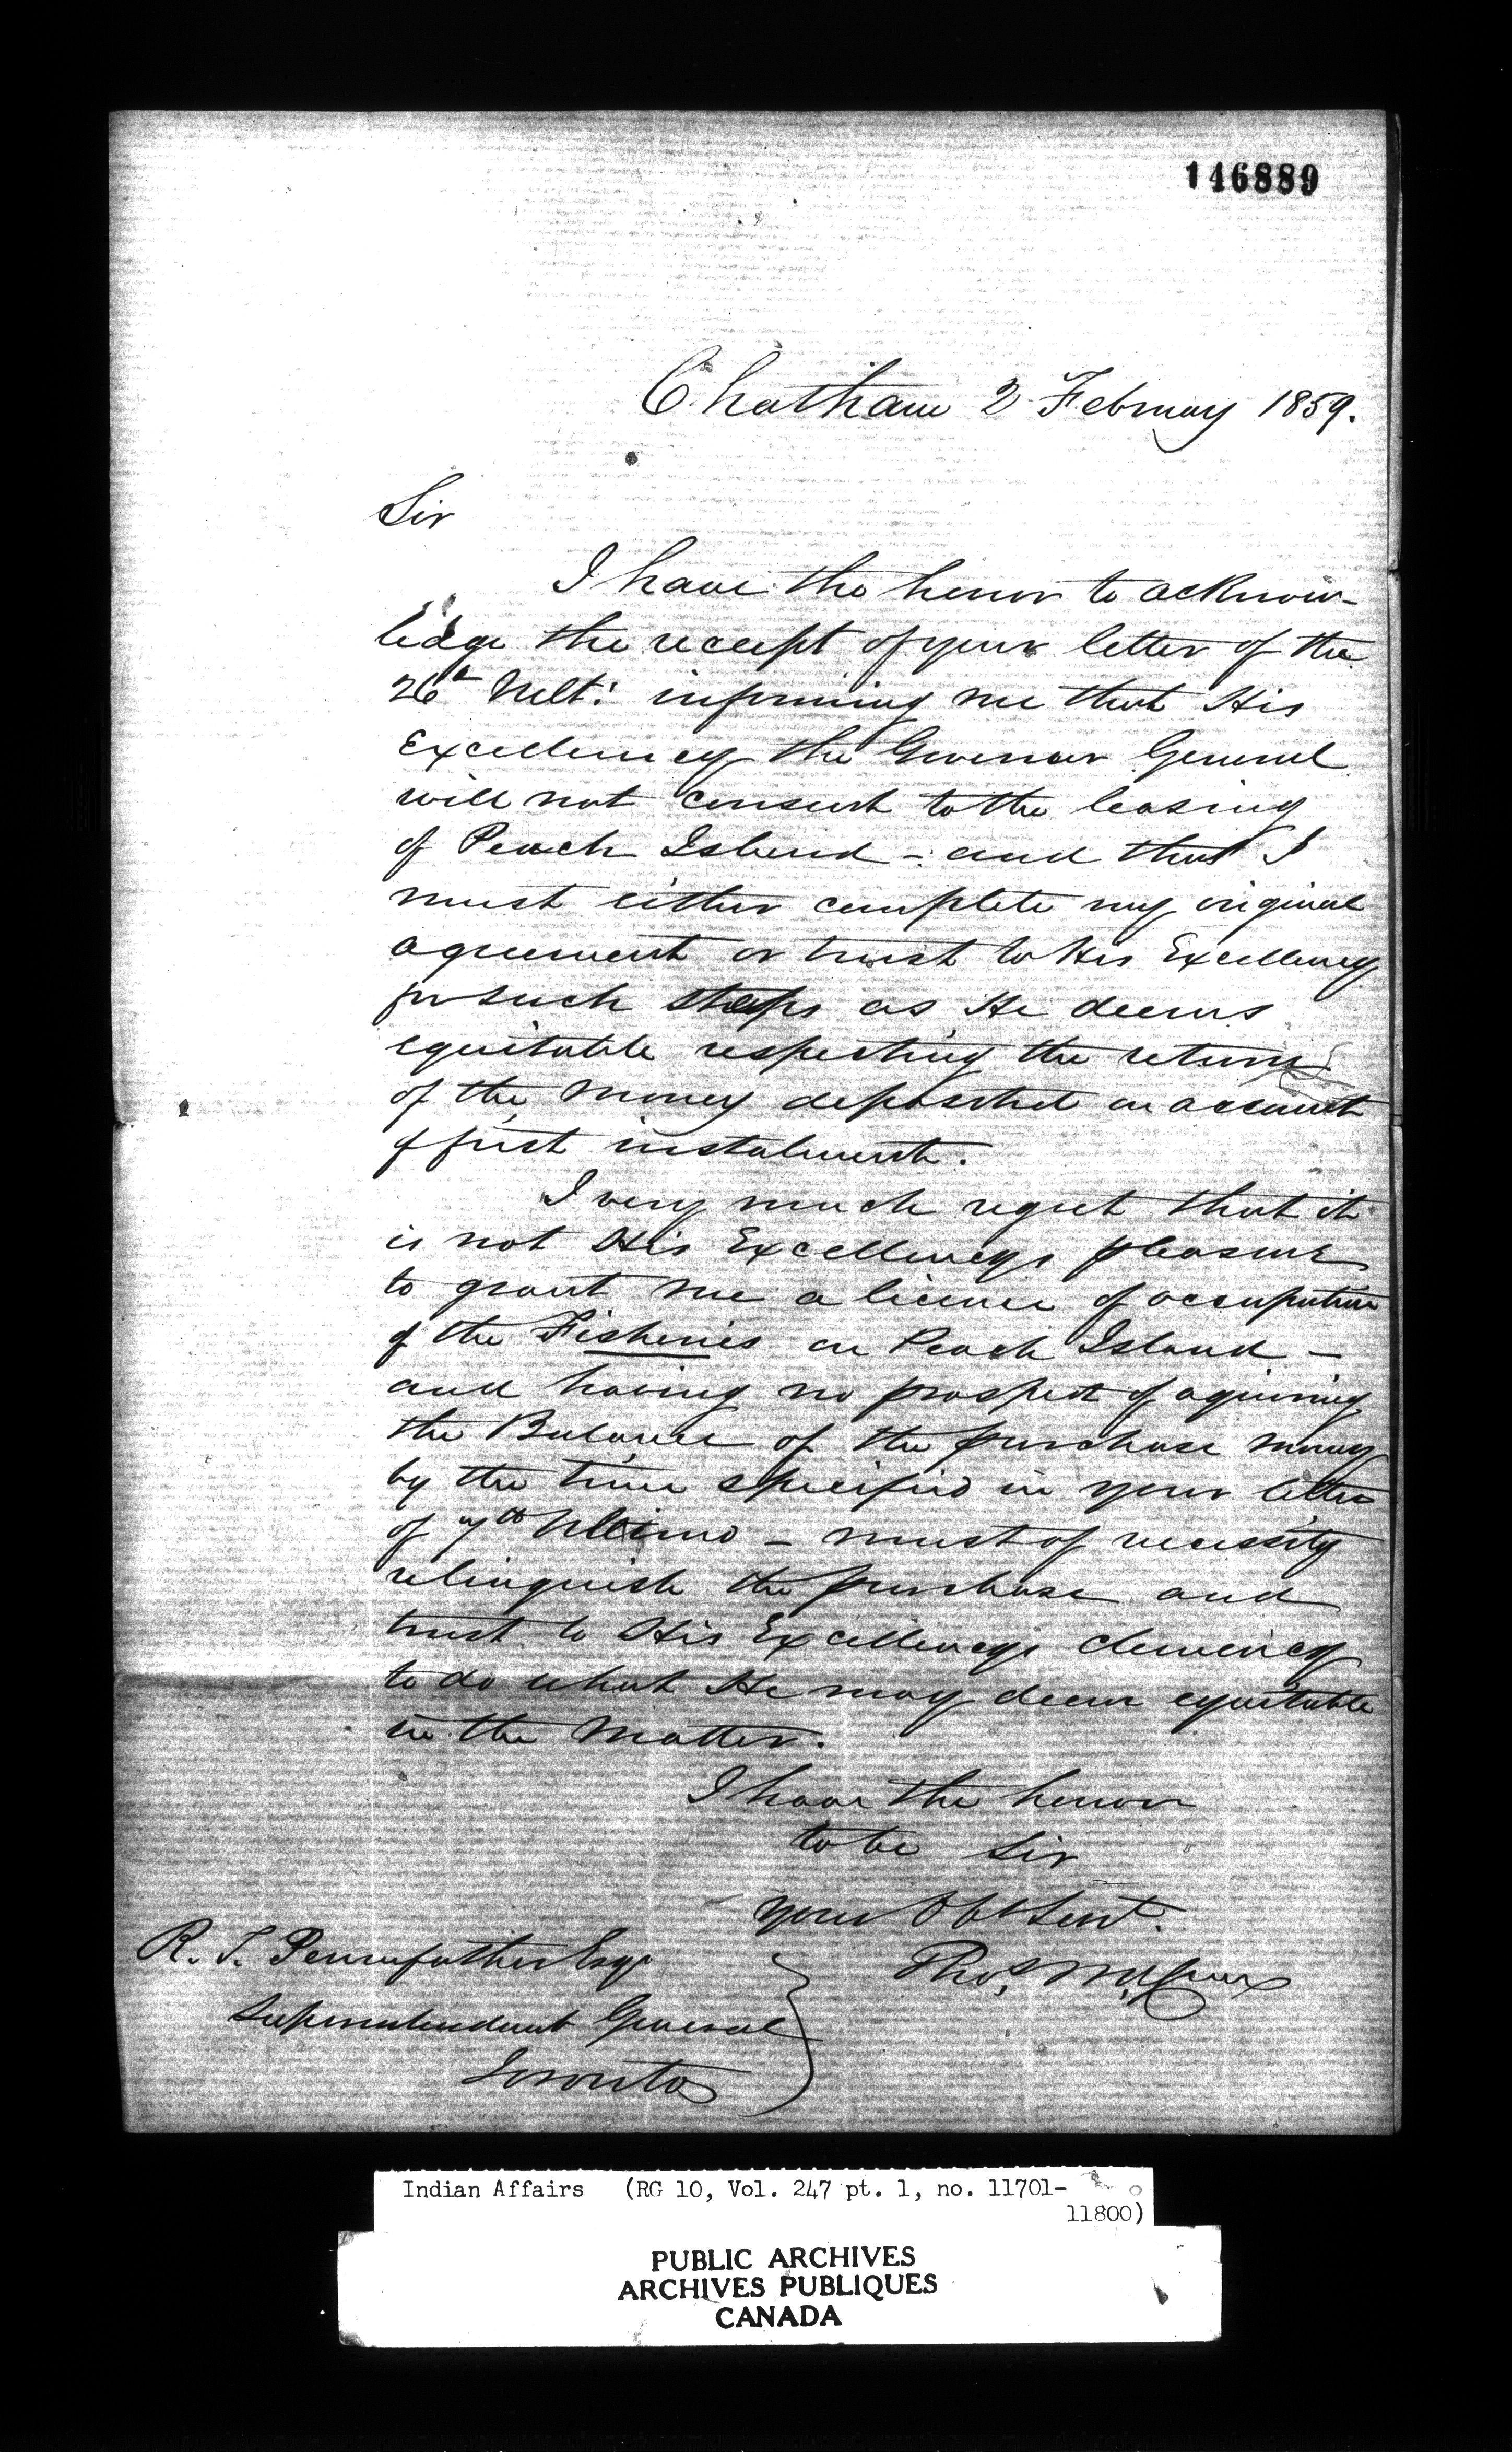 146889
Chatham 2 February 1859.
Sir
I have the honor to acknow-
ledge the receipt of your letter of the
26th Ult: informing me that His
Excellency the Governor General
will not consent to the leasing
of Peach Island - and that I
must either complete my original
agreement or trust to His Excellency
for such steps as He deems
equitable respecting the return
of the money deposited on account
of first instalment.
I very much regret that it
is not His Excellencys pleasure
to grant me a licence of occupation
of the Fisheries on Peach Island -
and having no prospect of aquiring
the Balance of the purchase money
by the time specified in your letter
of 7th Ultimo - must of necessity
relinquish the purchase and
trust to His Excellencys clemency
to do what He may deem equitable
in the matter.
I have the honor
to be Sir
your Obt Servt.
Thos.
R. T. Pennefather Esqr
Superintendent General
Toronto
Indian Affairs (RG 10, Vol. 247 pt. 1, no. 11701-
11800)
PUBLIC ARCHIVES
ARCHIVES PUBLIQUES
CANADA